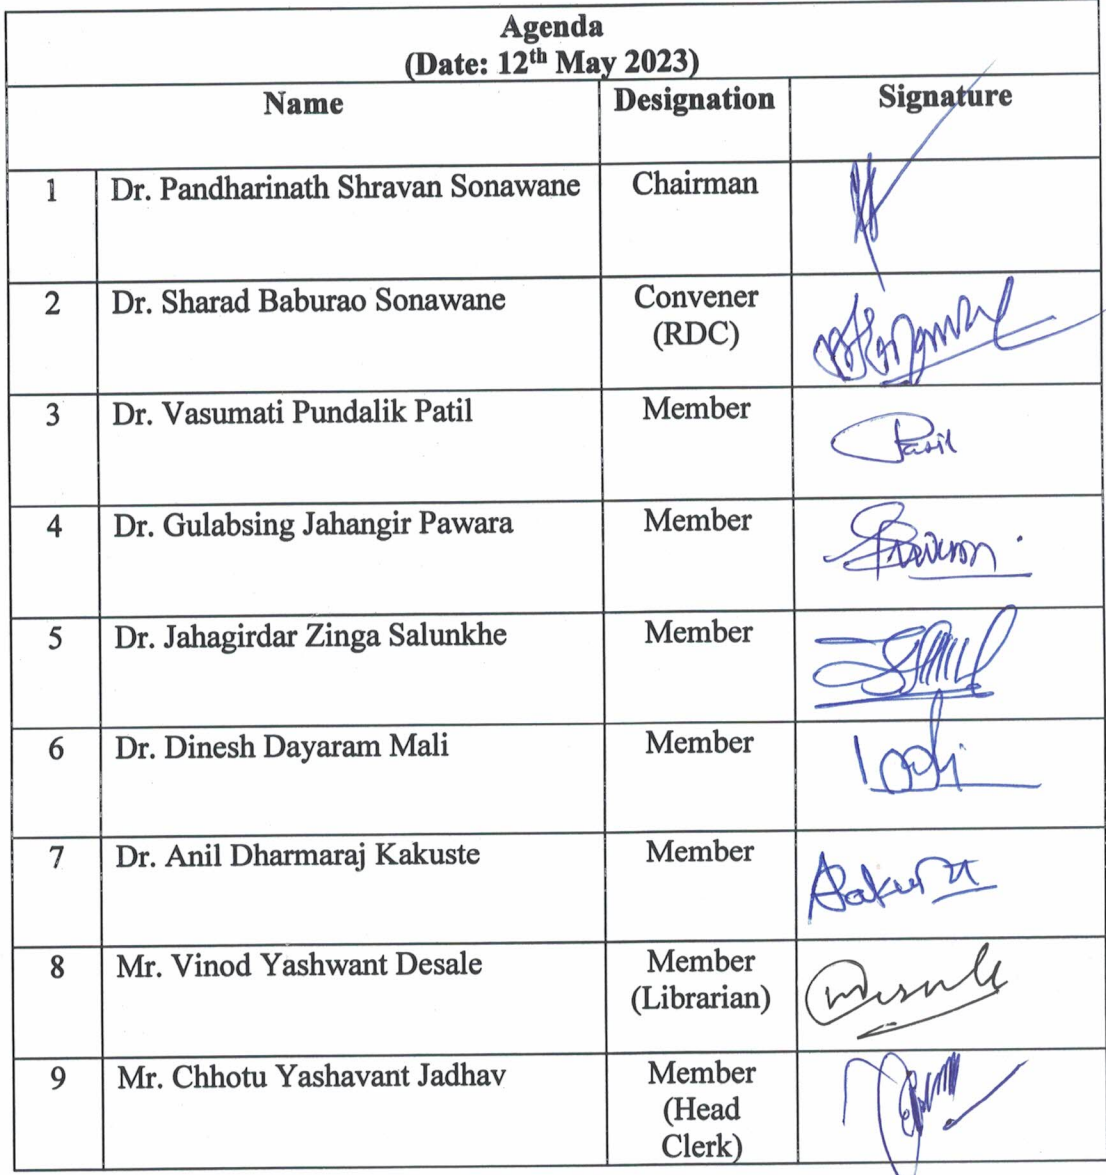 Agenda
(Date: 12th May 2023)
Name Designation Signature
1 Dr. Pandharinath Shravan Sonawane Chairman
2 Dr. Sharad Baburao Sonawane Convener
(RDC)
3 Dr. Vasumati Pundalik Patil Member
4 Dr. Gulabsing Jahangir Pawara Member
5 Dr. Jahagirdar Zinga Salunkhe Member
6 Dr. Dinesh Dayaram Mali Member
7 Dr. Anil Dharmaraj Kakuste Member
8 Mr. Vinod Yashwant Desale Member
(Librarian)
9 Mr. Chhotu Yashavant Jadhav Member
(Head
Clerk)